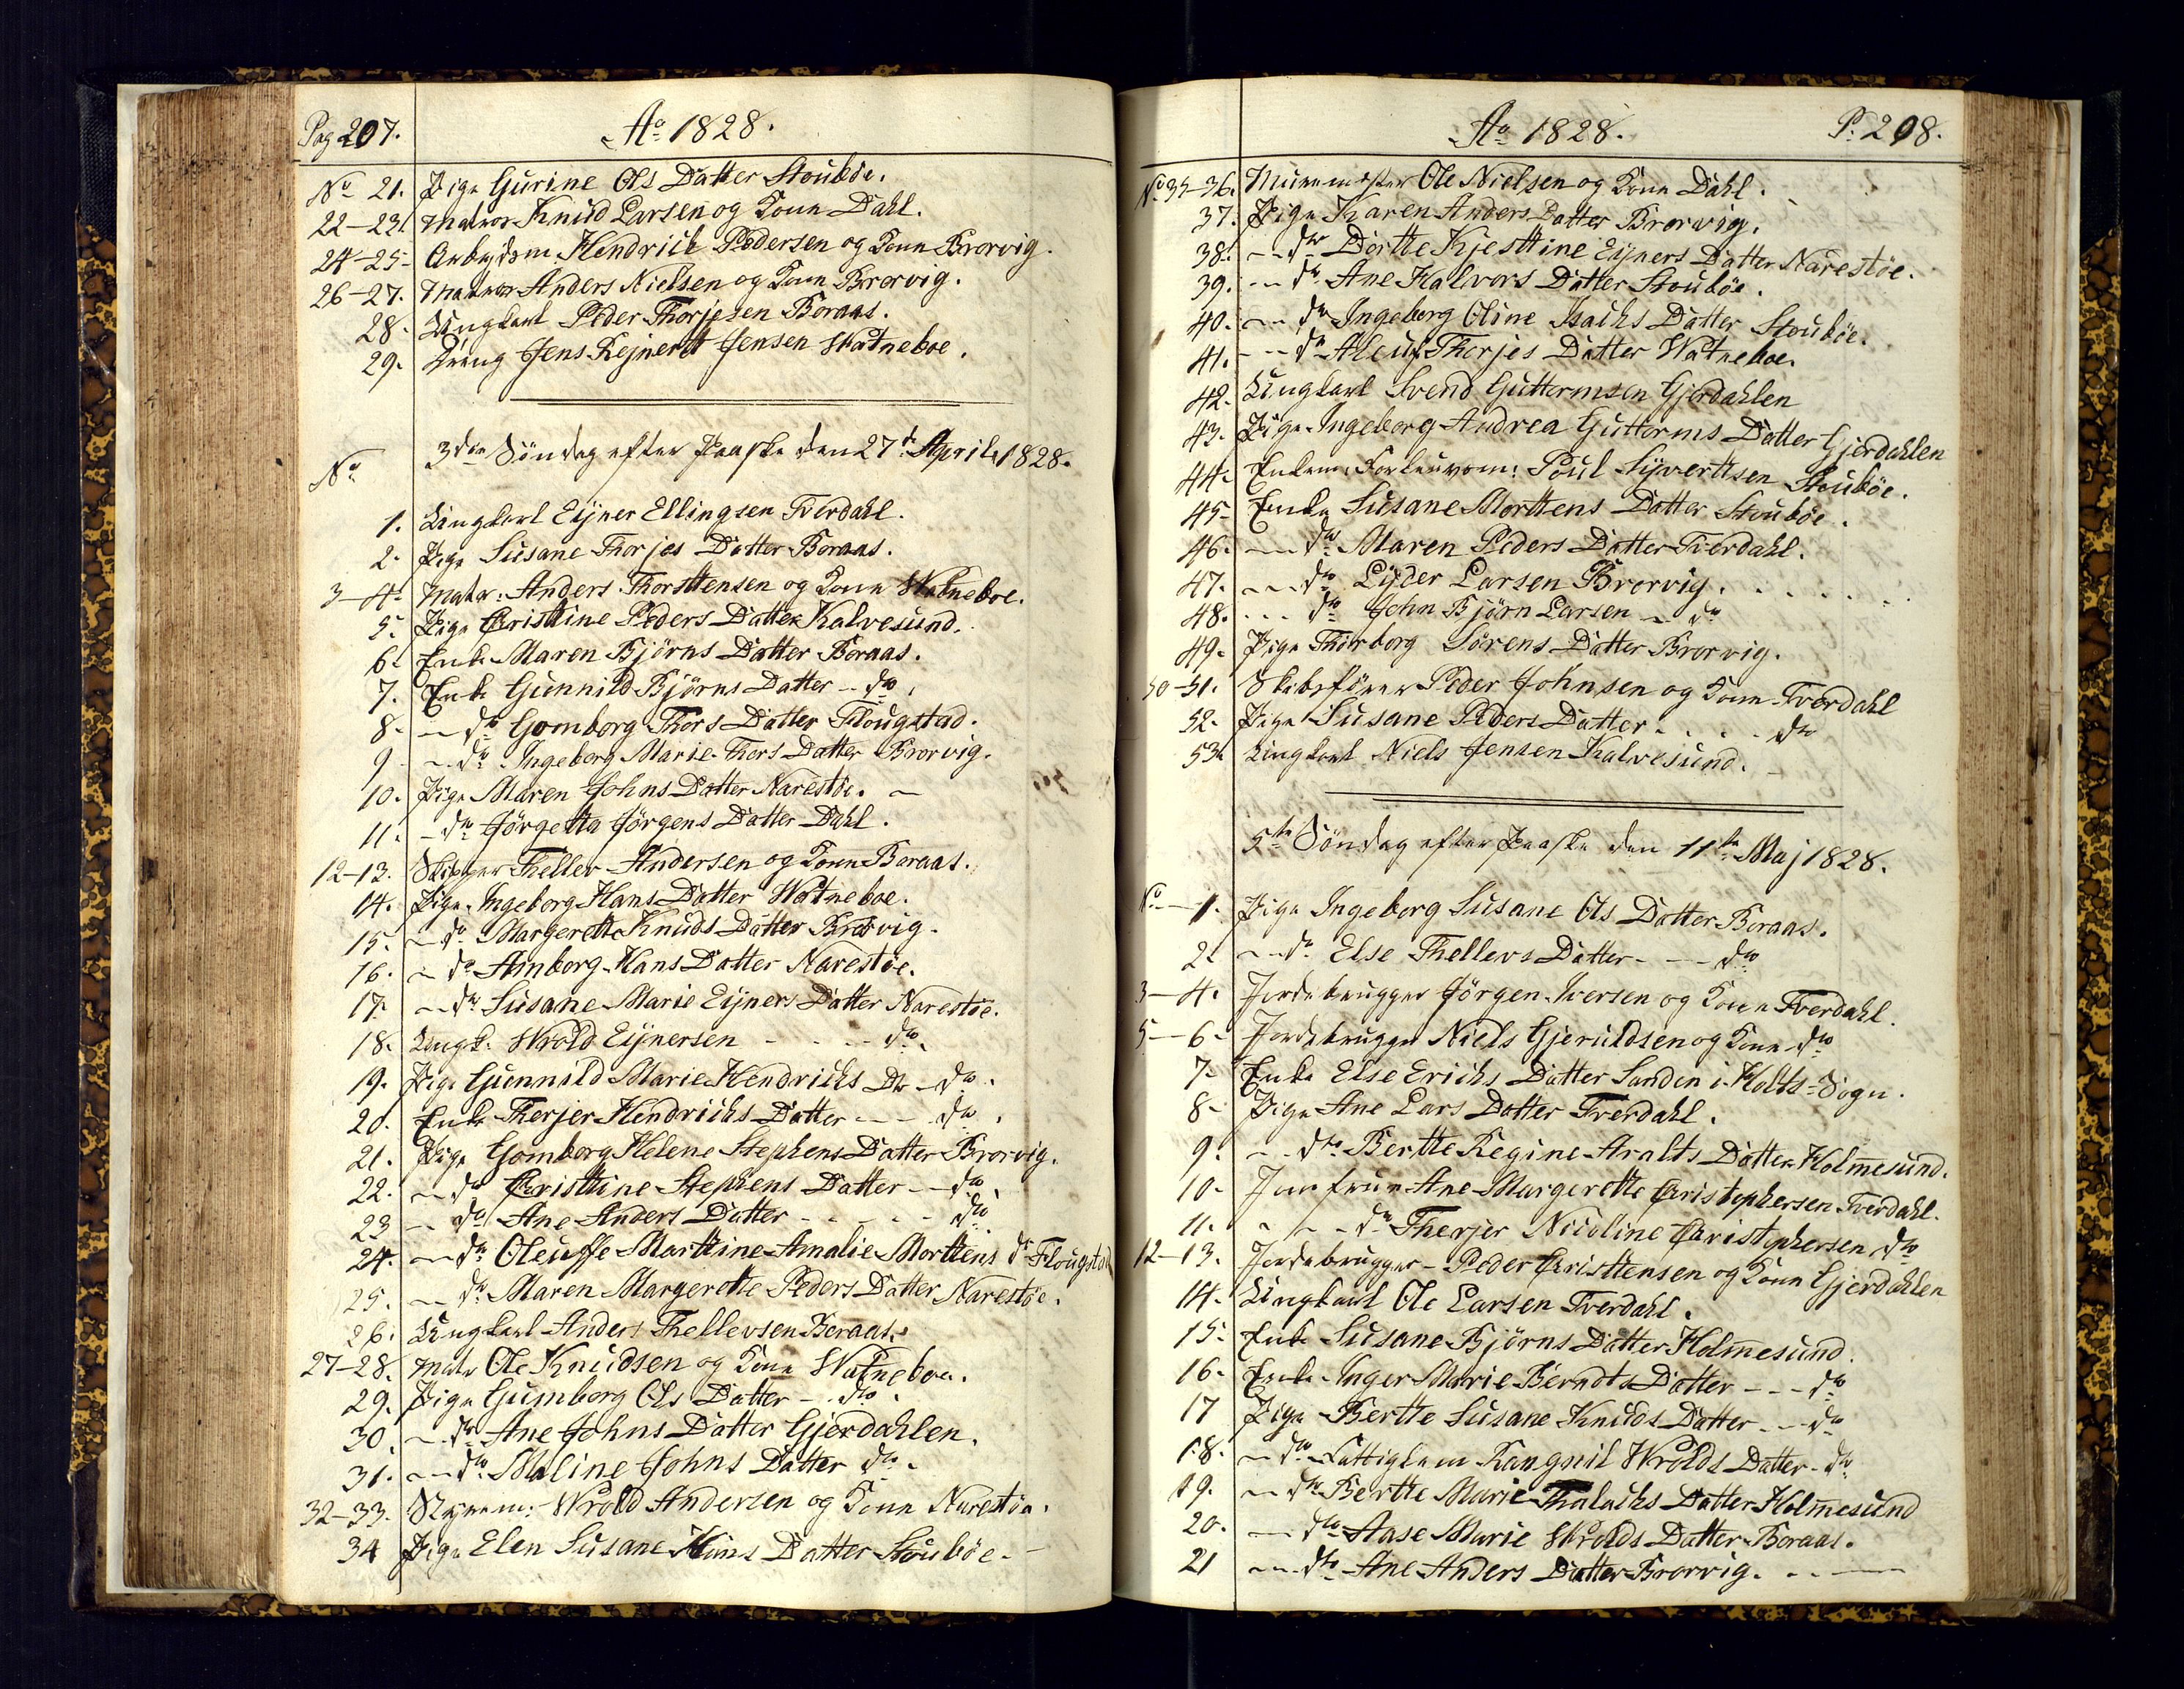 Pag 207.
Ao 1828.
No 21. Pige Gurine Ols Datter Stoubøe.
22-23. Matros Knud Larsen og Kone Dahl.
24-25- Arbejdsm. Hendrich Pedersen og Kone Brorvig.
26-27. Matros Anders Nielsen og Kone Brorvig.
28. Ungkarl Peder Thorjesen Boraas.
29. Dreng Jens Rejnert Jensen Watneboe.
No 3die Søndag efter Paaske den 27de April 1828.
1. Ungkarl Eijner Ellingsen Tverdahl.
2. Pige Susane Thorjes Datter Boraas.
3-4. Matr: Anders Thorsttensen og Kone Watneboe.
5. Pige Christtine Peders Datter Kalvesund.
6. Enke Maren Bjørns Datter Boraas.
7. Enke Gunnild Bjørns Datter -- do.
8. -- do Gomborg Thors Datter Flougstad.
9 -- do Ingeborg Marie Thors Datter Brorvig.
10. Pige Maren Johns Datter Narestøe. -
11. - do Jørgetta Jørgens Datter Dahl.
12-13. Skipper Thellev Andersen og Kone Boraas.
14. Pige Ingeborg Hans Datter Watneboe.
15. - do Margerette Knuds Datter Brorvig.
16. - do Amborg Hans Datter Narestøe.
17. -- do Susane Marie Eijners Datter Narestøe.
18. Ungk. Wrold Eijnersen - - - - do.
19. Pige Gunnild Marie Hendrichs Dr - do.
20. Enke Therjer Hendrichs Datter - - - do.
21. Pige Gomborg Helene Stephens Datter Brorvig.
22. -- do Christtine Stephens Datter -- do.
23 -- do Ane Anders Datter - - - - - do
24. -- do Oleuffe Marttine Amalie Morttens dr Flougstad
25. -- do Maren Margerette Peders Datter Narestøe.
26. Ungkarl Anders Thellevsen Boraas.
27-28. Matr Ole Knudsen og Kone Watneboe.
29. Pige Gumborg Ols Datter -- do.
30. -- do Ane Johns Datter Gjerdahlen.
31. -- do Maline Johns Datter do.
32-33. Styrem: Wrold Andersen og Kone Narestøe.
34 Pige Elen Susane Datter Stoubøe. -
Ao 1828. P. 208.
No 35-36. Muurmester Ole Nielsen og Kone Dahl.
37. Pige Karen Anders Datter Brorvig.
38. -- do Dortte Kjesttine Eijners Datter Narestøe.
39. -- do Ane Halvors Datter Stoubøe.
40. -- do Ingeborg Oline Isachs Datter Stoubøe.
41. -- do Aleuf Thorjes Datter Watneboe.
42. Ungkarl Svend Guttormsen Gjerdahlen
43. Pige Ingeborg Andrea Guttorms Datter Gjerdahlen
44. Enkem: Poul Syverttsen Stoubøe.
45- Enke Susane Morttens Datter Stoubøe.
46. -- do Maren Peders Datter Tverdahl.
47. -- do Lyder Larsen Brorvig. . . . . . .
48. . . . do John Bjørn Larsen -- do
49. Pige Thorborg Sørens Datter Brorvig.
50-51. Skibsfører Peder Johnsen og Kone Tverdahl
52. Pige Susane Peders Datter . . . . do
53. Ungkarl Niels Jensen Kalvesund.
5te Søndag efter Paaske den 11te Maj 1828.
No - 1. Pige Ingeborg Susane Ols Datter Boraas.
2. -- do Else Thellevs Datter - - - do
3-4. Jordebrugger Jørgen Iversen og Kone Tverdahl.
5-6- Jordebrugger Niels Gjeruldsen og Kone do
7- Enke Else Erichs Datter Sanden i Holts-Sogn.
8- Pige Ane Lars Datter Tverdahl.
9. -- do Bertte Regine Aralts Datter Holmesund.
10- Jomfrue Ane Margerette Christophersen Tverdahl.
11. - - - do Therjer Nicoline Christophersen do
12-13. Jordebrugger - Peder Christtensen og Kone Gjerdahlen
14. Ungkarl Ole Larsen Tverdahl.
15- Enke Susane Bjørns Datter Holmesund.
16- Enke Inger Marie Berndts Datter - - - do
17 Pige Bertte Susane Knuds Datter - - do
18. -- do Fattiglem Rangnil Wrolds Datter - do
19. -- do Bertte Marie Thalachs Datter Holmesund
20. -- do Aase Marie Wrolds Datter Boraas.
21 -- do Ane Anders Datter Brorvig. - - -